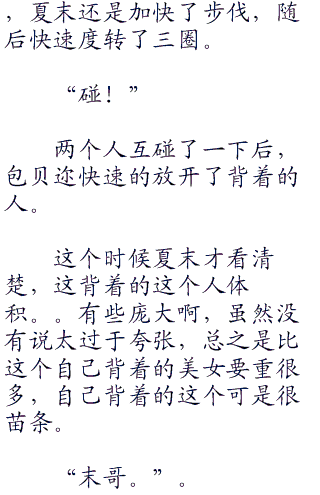 ，夏末还是加快了步伐，随
后快速度转了三圈。
“碰！”
两个人互碰了一下后，
包贝迩快速的放开了背着的
人。
这个时候夏末才看清
楚，这背着的这个人体
积。。有些庞大啊，虽然没
有说太过于夸张，总之是比
这个自己背着的美女要重很
多，自己背着的这个可是很
苗条。
“末哥。”。